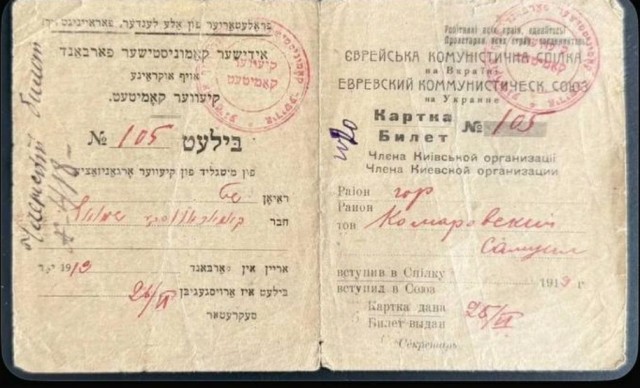 פּראָלעטאַריער פון אַלע לענדער, פאַראייניגט זיך!
אידישער קאָמוניסטישער פאַרבאַנד
אויף אוקראַינע
קיעווער קאָמיטעט.
בילעט № 105
פון מיטגליד פון קיעווער אָרגאַניזאַציע
ראַיאָן
חבר
אַריין אין פאַרבאַנד 1919
בילעט איז אַרויסגעגעבן 26/VI
סעקרעטאַר
Пролетарі всіх країн, єднайтесь!
Пролетарии всех стран, соединяйтесь!
ЄВРЕЙСЬКА КОМУНІСТИЧНА СПІЛКА
на Вкраїні
ЕВРЕЙСКИЙ КОММУНИСТИЧЕСК. СОЮЗ
на Украине
Картка
Билет № 105
Члена Київської організації
Члена Киевской организации
Район гор
Район
тов Комаровский
Самуил
вступив в Спілку
вступил в Союз 1919 г
Картка дана
Билет выдан 26/VI
Секретарь